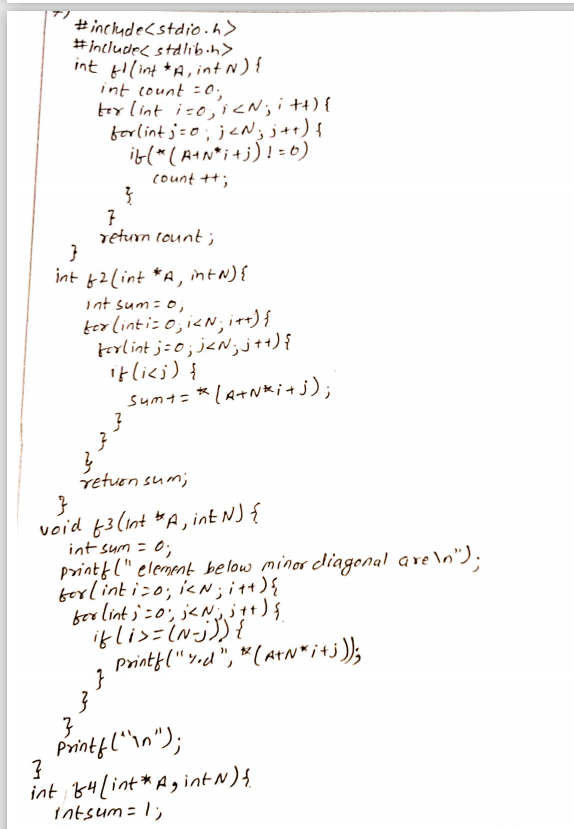 #include<stdio.h>
#include<stdlib.h>
int f1(int *A, int N){
int count = 0;
for(int i=0; i<N; i++){
for(int j=0; j<N; j++){
if(*(A+N*i+j) != 0)
count ++;
}
}
return count;
}
int f2(int *A, int N){
int sum = 0;
for(int i= 0; i<N; i++){
for(int j=0; j<N; j++){
if(i<j) {
sum += *(A+N*i+j);
}
}
}
return sum;
}
void f3(int *A, int N){
int sum = 0;
printf(" element below minor diagonal are \n");
for(int i=0; i<N; i++){
for(int j=0; j<N; j++){
if(i>=(N-j)){
printf("%d", *(A+N*i+j));
}
}
}
printf("\n");
}
int f4(int* A, int N){
int sum = 1;